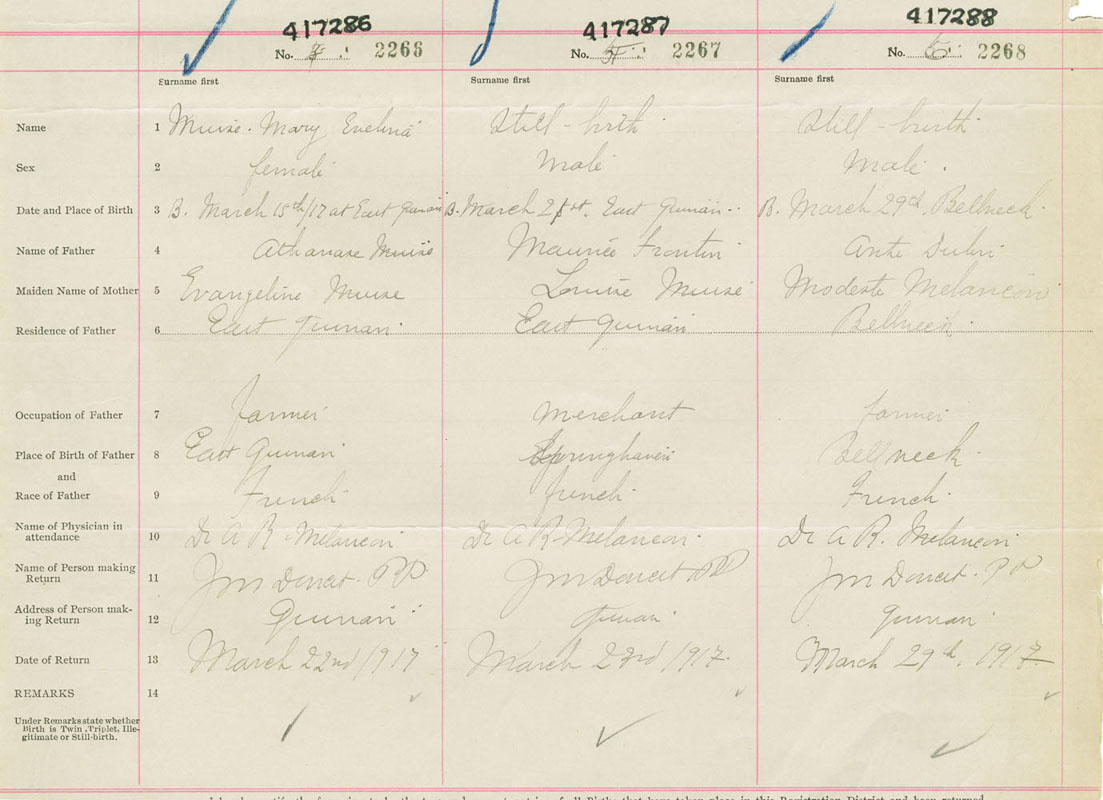 417286 417287 417288
No. 2266 No. 2267 No. 2268
Surname first Surname first Surname first
Name 1 Muise. Mary Evelina Still-birth Still-birth
Sex 2 female male Male.
Date and Place of Birth 3 B. March 15th/17 at East Quinan B. March 21st. East Quinan. B. March 29th Bellneck.
Name of Father 4 Athanase Muise Maurice Frontin
Maiden Name of Mother 5 Evangeline Muise Louise Muise Modeste Melancon
Residence of Father 6 East Quinan East Quinan Bellneck.
Occupation of Father 7 farmer merchant farmer
Place of Birth of Father 8 East Quinan Springhaven Bellneck.
and
Race of Father 9 French french French.
Name of Physician in
attendance 10 Dr A R Melancon Dr A R Melancon. Dr A R. Melancon
Name of Person making
Return 11 Donat. PP Donat PP Donat. PP
Address of Person mak-
ing Return 12 Quinan Quinan Quinan
Date of Return 13 March 22nd 1917 March 23rd 1917. March 29th, 1917
REMARKS 14
Under Remarks state whether
Birth is Twin, Triplet, Ille-
gitimate or Still-birth.